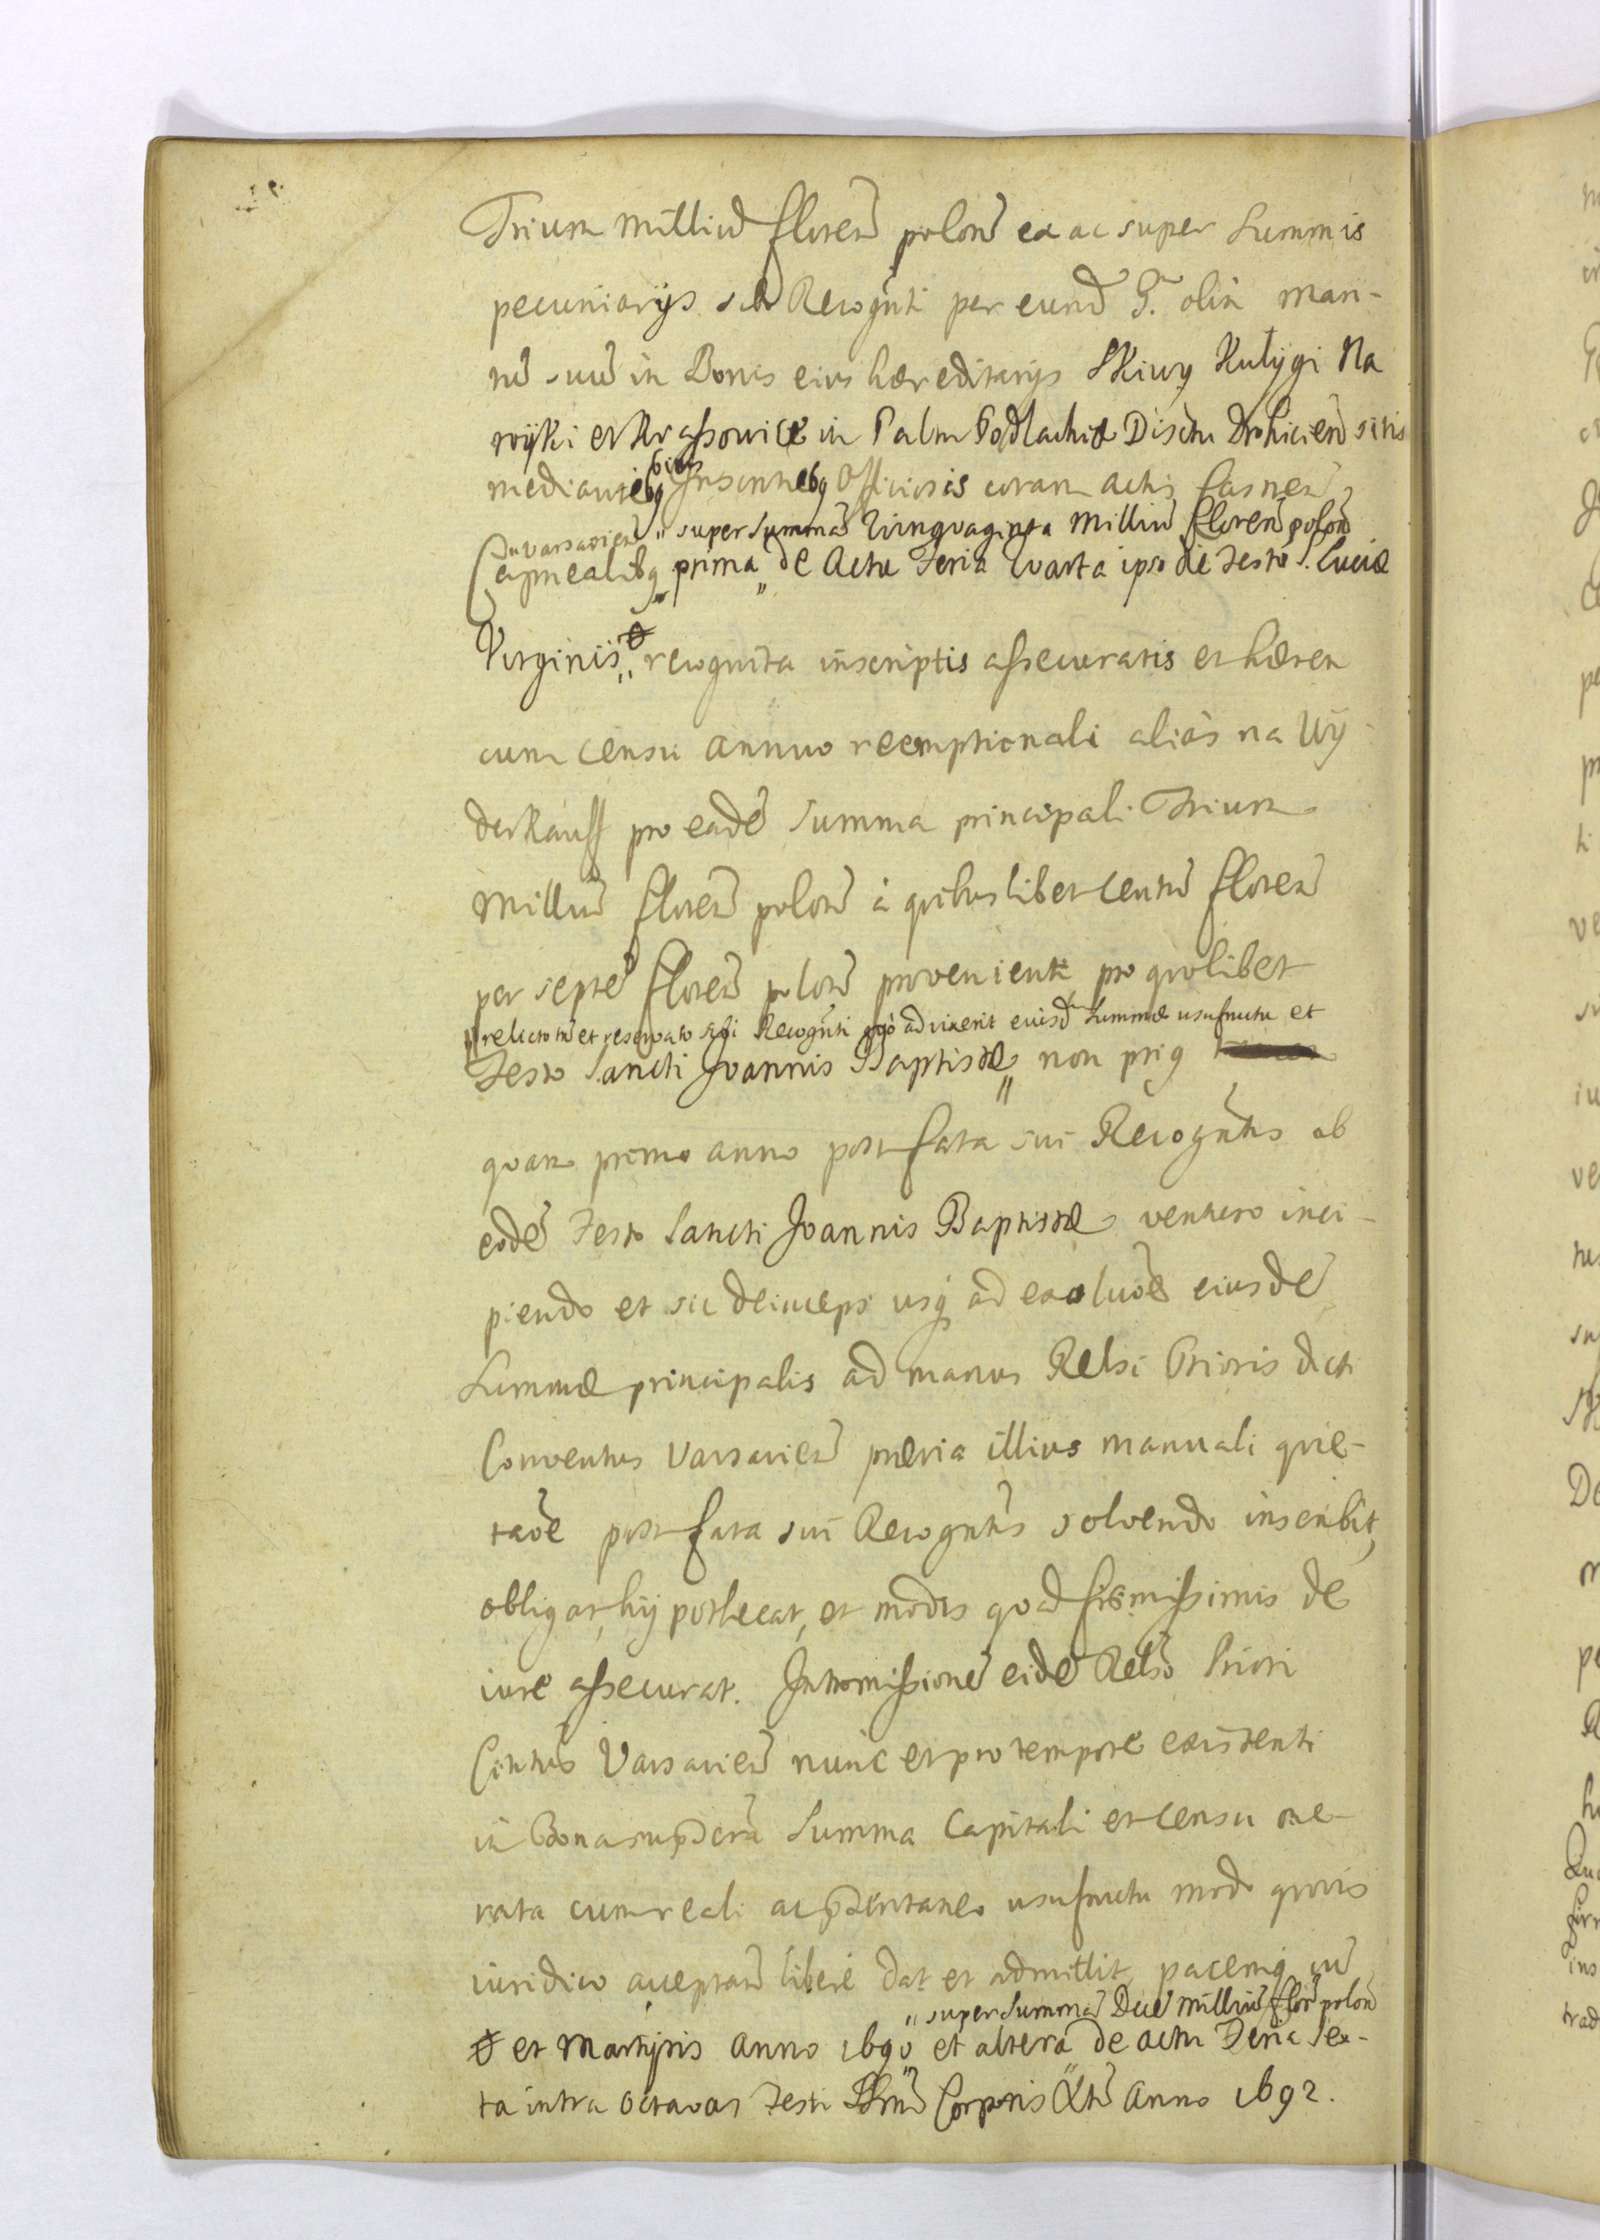 Trium milliu floren polon ex ac super Summis
pecuniarijs sibi Recogñti per eund G. olim mari-
tu suu in Bonis eius hæreditarijs Skiwy Kulÿgi Na
rÿki et Krassowice in Palm Podlachiæ Disctu Drohicien sitis
mediantibq binis Inscriptiebq Officiosis coram actis Casnen
Varsavien " super Summa Quinquaginta Milliu Floren polon
Capnealibq prima " de Actu Feria Quarta ipso die Festo S. Luciæ
Virginis " recognita inscriptis assecuratis et hæren
cum censu annuo reemptionali aliàs na Wÿ
derkauff pro eadé summa principali Trium
Milliu floren polon à quibuslibet centu floren
per septé floren polon provenienti pro quolibet
" relicto tn et reservato sibi Recogñti quo advixerit eiusd Summæ usufructu et
Festo Sancti Joannis Baptistæ " non priq
quam primo anno post fata sui Recogñtis ab
eodé Festo Sancti Joannis Baptistæ venturo inci-
piendo et sic deinceps usq ad exoluoe eiusdé
Summæ principalis ad manus Relsi Prioris dicti
Conventus Varsavien prævia illius manuali quie-
taoe post fata sui Recogñtis solvendo inscribit,
obligat, hÿpothecat, et modis quod firmissimis de
iure assecurat. Intromissioné eidé Relso Priori
Cintus Varsavien nunc et pro tempore existenti
in Bona supdcta Summa Capitali et censu one-
rata cum reali ac pdentaneo usufructu modo quovis
iuridico acceptan liberé dat et admittit, pacemq cu
" super Summa Due milliu flor polon
et Martÿris Anno 1690 et altera de actu Feria Sex-
ta intra octavas Festi SSmi Corporis Xti Anno 1692.